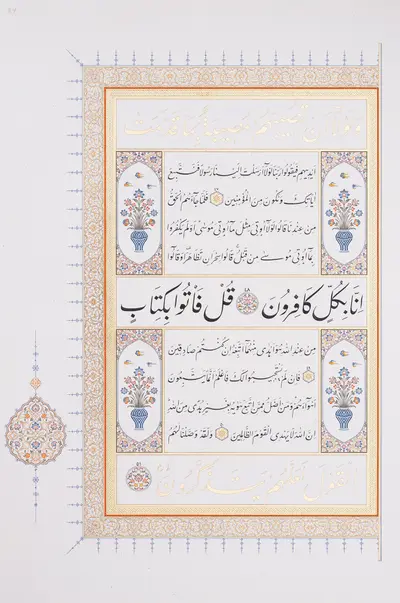 ولولا ان تصيبهم مصيبة بما قدمت
ايديهم فيقولوا ربنا لولا ارسلت الينا رسولا فنتبع
اياتك ونكون من المؤمنين فلما جاءهم الحق
من عندنا قالوا لولا اوتي مثل ما اوتي موسى اولم يكفروا
بما اوتي موسى من قبل قالوا سحران تظاهرا وقالوا
انا بكل كافرون قل فأتوا بكتاب
من عند الله هو اهدى منهما اتبعه ان كنتم صادقين
فان لم يستجيبوا لك فاعلم انما يتبعون
اهواءهم ومن اضل ممن اتبع هويه بغير هدى من الله
ان الله لا يهدي القوم الظالمين ولقد وصلنا لهم
القول لعلهم يتذكرون